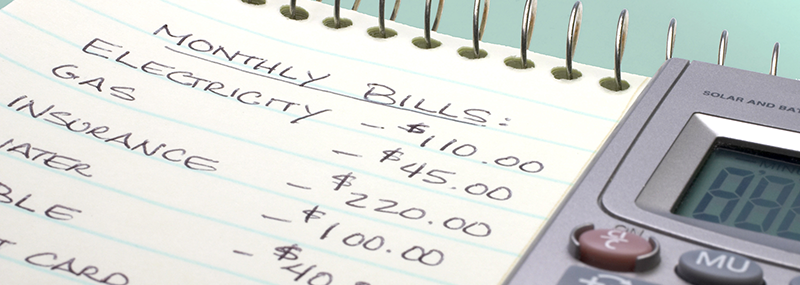 MONTHLY BILLS:
ELECTRICITY - $110.00
GAS - $45.00
INSURANCE - $220.00
WATER - $100.00
- $40
CARD
SOLAR AND
ON
MU